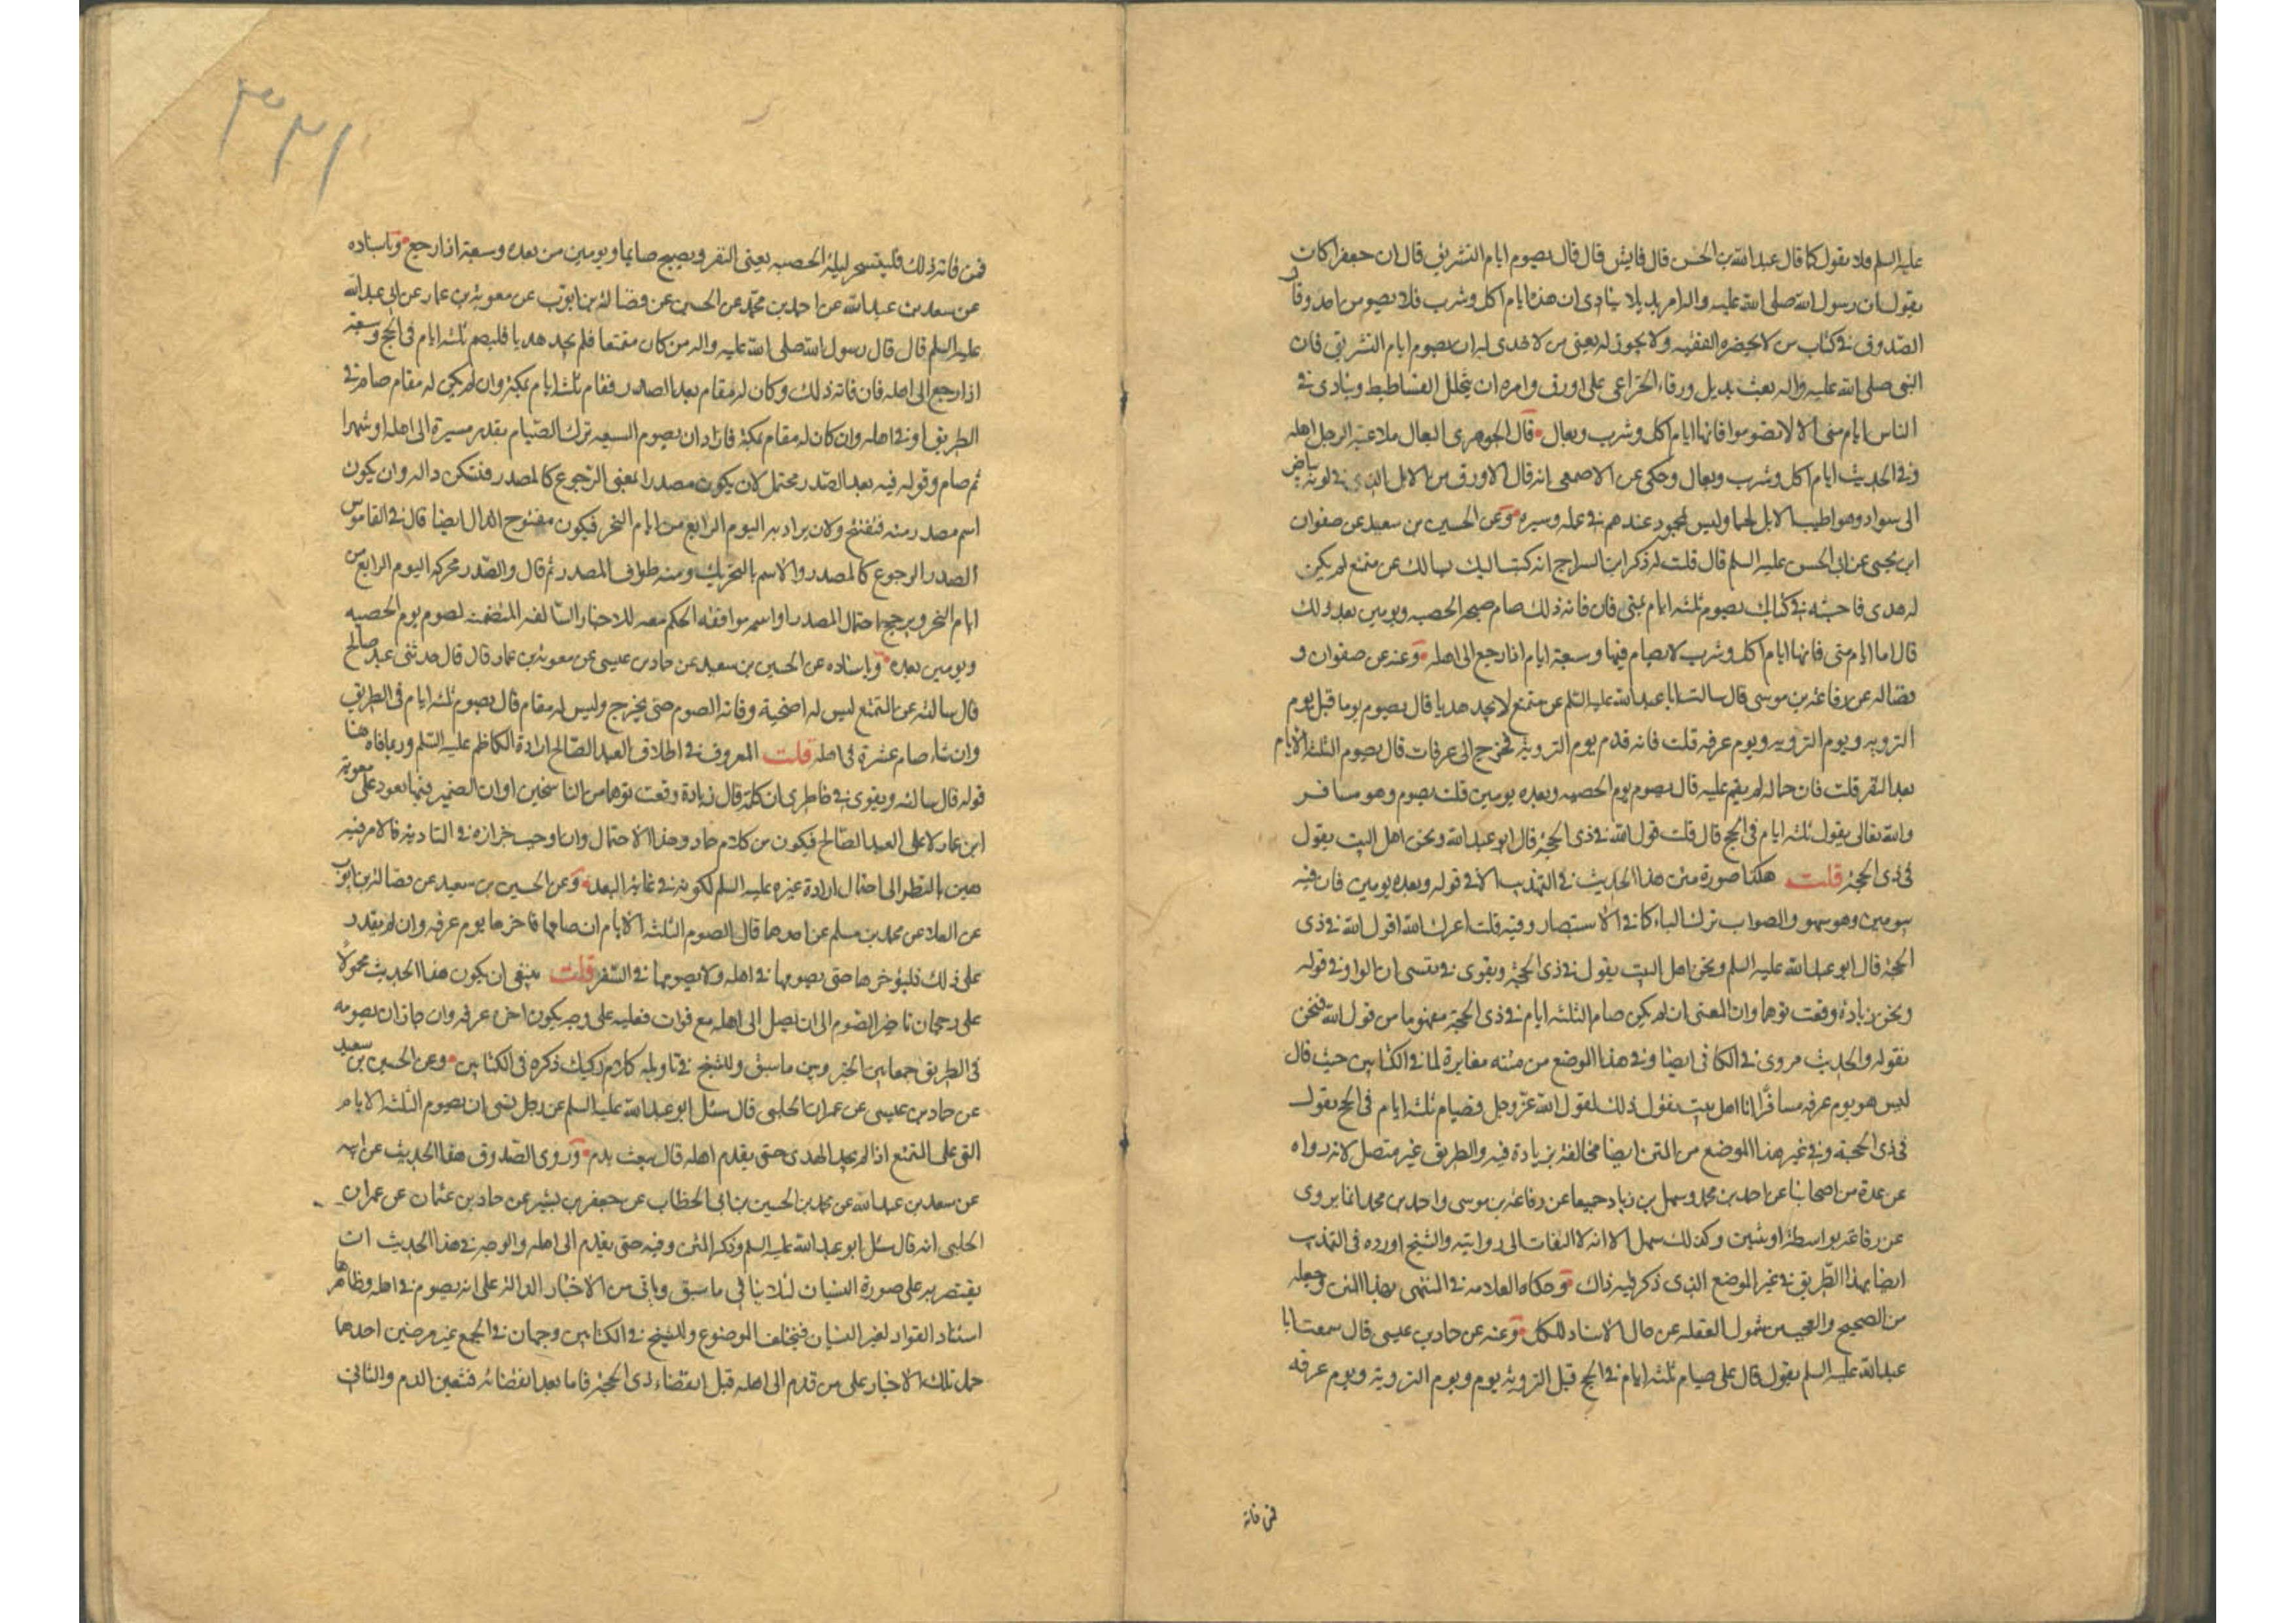 عليه السلم فلا يقول كما قال عبد الله بن الحسن قال فايش قال قال يصوم ايام التشريق قال ان جعفرا كان
يقول ان رسول الله صلى الله عليه واله امر بديلا ينادى ان هذه ايام اكل وشرب فلا يصومن احد وقال
الصدوق في كتاب من لا يحضره الفقيه ولا يجوز له يعنى من لا هدى له ان يصوم ايام التشريق فان
النبى صلى الله عليه واله بعث بديل ورقاء الخزاعى على اورق وامره ان يتخلل الفساطيط وينادى في
الناس ايام منى الا لا تصوموا فانها ايام اكل وشرب وبعال قال الجوهرى البعال ملاعبة الرجل اهله
وفي الحديث ايام اكل وشرب وبعال وحكى عن الاصمعى انه قال الاورق من الابل الذى في لونه بياض
الى سواد وهو اطيب الابل لحما وليس بمحمود عندهم في عمله وسيره وعن الحسين بن سعيد عن صفوان
ابن يحيى عن ابى الحسن عليه السلم قال قلت له ذكر ابن السراج انه كتب اليك يسالك عن متمتع لم يكن
له هدى فاجبته في كتابك يصوم ثلثه ايام بمنى فان فاته ذلك صام صبحة الحصبه ويومين بعد ذلك
قال اما ايام منى فانها ايام اكل وشرب لا صيام فيها وسبعة ايام اذا رجع الى اهله وعنه عن صفوان و
فضاله عن رفاعة بن موسى قال سالت ابا عبد الله عليه السلم عن متمتع لا يجد هديا قال يصوم يوما قبل يوم
الترويه ويوم الترويه ويوم عرفه قلت فانه قدم يوم التروية فخرج الى عرفات قال يصوم الثلثة الايام
بعد النفر قلت فان جماله لم يقم عليه قال يصوم يوم الحصبه وبعده يومين قلت يصوم وهو مسافر
والله تعالى يقول ثلثه ايام في الحج قال قلت قول الله في ذى الحجة قال ابو عبد الله ونحن اهل البيت يقول
في ذى الحجة قلت هكذا صورة متن هذا الحديث في التهذيب الا في قوله وبعده يومين فان فيه
بيومين وهو سهو والصواب ترك الباء كما في الاستبصار وفيه قلت اعزك الله اقول الله في ذى
الحجة قال ابو عبد الله عليه السلم ونحن اهل البيت يقول في ذى الحجة ويقوى في نفسى ان الواو في قوله
ونحن زيادة وقعت توهما وان المعنى ان لم يكن صام الثلثه ايام في ذى الحجة مفهوما من قول الله فنحن
نقوله والحديث مروى في الكافى ايضا وفي هذا الموضع من متنه مغايرة لما في الكتابين حيث قال
ليس هو يوم عرفه مسافرا انا اهل بيت نقول ذلك لقول الله عز وجل فصيام ثلثه ايام في الحج يقول
في ذى الحجة وفي غير هذا الموضع من المتن ايضا مخالفة بزيادة فيه والطريق غير متصل لانه رواه
عن عدة من اصحابنا عن احمد بن محمد وسهل بن زياد جميعا عن رفاعة بن موسى واحمد بن محمد انما يروى
عن رفاعة بواسطة او ثنتين وكذلك سهل الا انه لا التفات الى روايته والشيخ اورده في التهذيب
ايضا بهذا الطريق في غير الموضع الذى ذكر فيه ذاك وحكاه العلامه في المنتهى بهذا المتن وجعله
من الصحيح والعجب من شمول الغفله عن حال الاسناد للكل وعنه عن حماد بن عيسى قال سمعت ابا
عبد الله عليه السلم يقول قال على صيام ثلثة ايام في الحج قبل التروية يوم ويوم التروية ويوم عرفه
فمن فاته
٣٢١
فمن فاته ذلك فليتسحر ليلة الحصبه يعنى النفر ويصبح صايما ويومين من بعده وسبعة اذا رجع وباسناده
عن سعد بن عبد الله عن احمد بن محمد عن الحسين عن فضالة بن ايوب عن معوية بن عمار عن ابى عبد الله
عليه السلم قال قال رسول الله صلى الله عليه واله من كان متمتعا فلم يجد هديا فليصم ثلثه ايام في الحج وسبعة
اذا رجع الى اهله فان فاته ذلك وكان له مقام بعد الصدر فقام ثلثة ايام بمكة وان لم يكن له مقام صام في
الطريق او في اهله وان كان له مقام بمكة فاراد ان يصوم السبعه ترك الصيام بقدر مسيرة الى اهله او شهرا
ثم صام وقوله فيه بعد الصدر محتمل لان يكون مصدرا بمعنى الرجوع كالمصدر فتسكن داله وان يكون
اسم مصدر منه فتفتح ولان يراد به اليوم الرابع من ايام النحر فيكون مفتوح الدال ايضا قال في القاموس
الصدر الرجوع كالمصدر والاسم بالتحريك ومنه طواف الصدر ثم قال والصدر محركه اليوم الرابع من
ايام النحر ويرجح احتمال المصدر او اسمه موافقة الحكم معه للاخبار السالفه المتضمنه لصوم يوم الحصبه
ويومين بعده وباسناده عن الحسين بن سعيد عن حماد بن عيسى عن معوية بن عمار قال قال حدثنى عبد صالح
قال سالته عن المتمتع ليس له اضحية وفاته الصوم حتى يخرج وليس له مقام قال يصوم ثلثه ايام في الطريق
وان شاء صام عشرة في اهله قلت المعروف في اطلاق العبد الصالح ارادة الكاظم عليه السلم وربما نافاه هنا
قوله قال سالته ويقوى في خاطرى ان كلمة قال زيادة وقعت توهما من الناسخين او ان الضمير فيها يعود على معوية
ابن عمار لا على العبد الصالح فيكون من كلام حماد وهذا الاحتمال وان اوجب حزازة في التادية فالامر فيه
هين بالنظر الى احتمال ارادة غيره عليه السلم لكونه في غاية البعد وعن الحسين بن سعيد عن فضالة بن ايوب
عن العلا عن محمد بن مسلم عن احدهما قال الصوم الثلثة الايام ان صامها فاخرها يوم عرفه وان لم يقدر
على ذلك فليؤخرها حتى يصومها في اهله ولا يصومها في السفر قلت ينبغى ان يكون هذا الحديث محمولا
على رجحان تاخير الصوم الى ان يصل الى اهله مع فوات فعليه على وجه يكون اخره عرفه وان جاز ان يصومه
في الطريق جمعا بين الخبر وبين ما سبق وللشيخ في تاويله كلام ركيك ذكره في الكتابين وعن الحسين بن سعيد
عن حماد بن عيسى عن عمران الحلبى قال سئل ابو عبد الله عليه السلم عن رجل نسى ان يصوم الثلثة الايام
التى على المتمتع اذا لم يجد الهدى حتى يقدم اهله قال يبعث بدم وروى الصدوق هذا الحديث عن ابيه
عن سعد بن عبد الله عن محمد بن الحسين بن ابى الخطاب عن جعفر بن بشير عن حماد بن عثمان عن عمران
الحلبى انه قال سئل ابو عبد الله عليه السلم وذكر المتن وفيه حتى يقدم الى اهله والوجه في هذا الحديث ان
يقتصر به على صورة النسيان لئلا ينافى ما سبق وياتى من الاخبار الدالة على انه يصوم في اهله وظاهرها
استناد الفوات لغير النسيان فيختلف الموضوع وللشيخ في الكتابين وجهان في الجمع غير مرضيين احدهما
حمل تلك الاخبار على من قدم الى اهله قبل انقضاء ذى الحجة فاما بعد انقضائه فتعين الدم والثانى